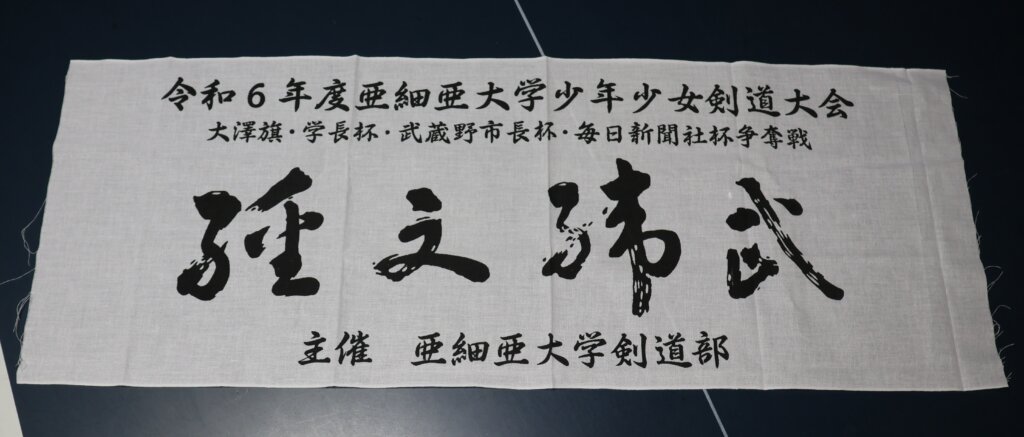 令和6年度亜細亜大学少年少女剣道大会
大澤旗・学長杯・武蔵野市長杯・毎日新聞社杯争奪戦
經文緯武
主催　亜細亜大学剣道部